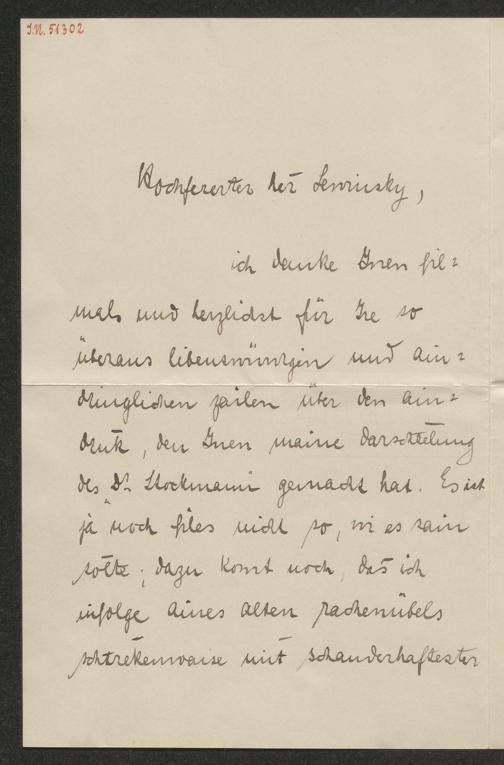 I.N. 51302
Hochfererter her̄ Lewinsky,
ich danke Inen fil=
mals und herzlichst für Ire so
überaus libenswürdigen und ain=
dringlichen zailen über den ain=
druk, den Inen maine darschtelung
des "Dr. Stockmann" gemacht hat. Es ist
ja noch files nicht so, wi es sain
solte; dazu komt noch, das ich
infolge aines alten rachenübels
schtrekenwaise mit schauderhaftester